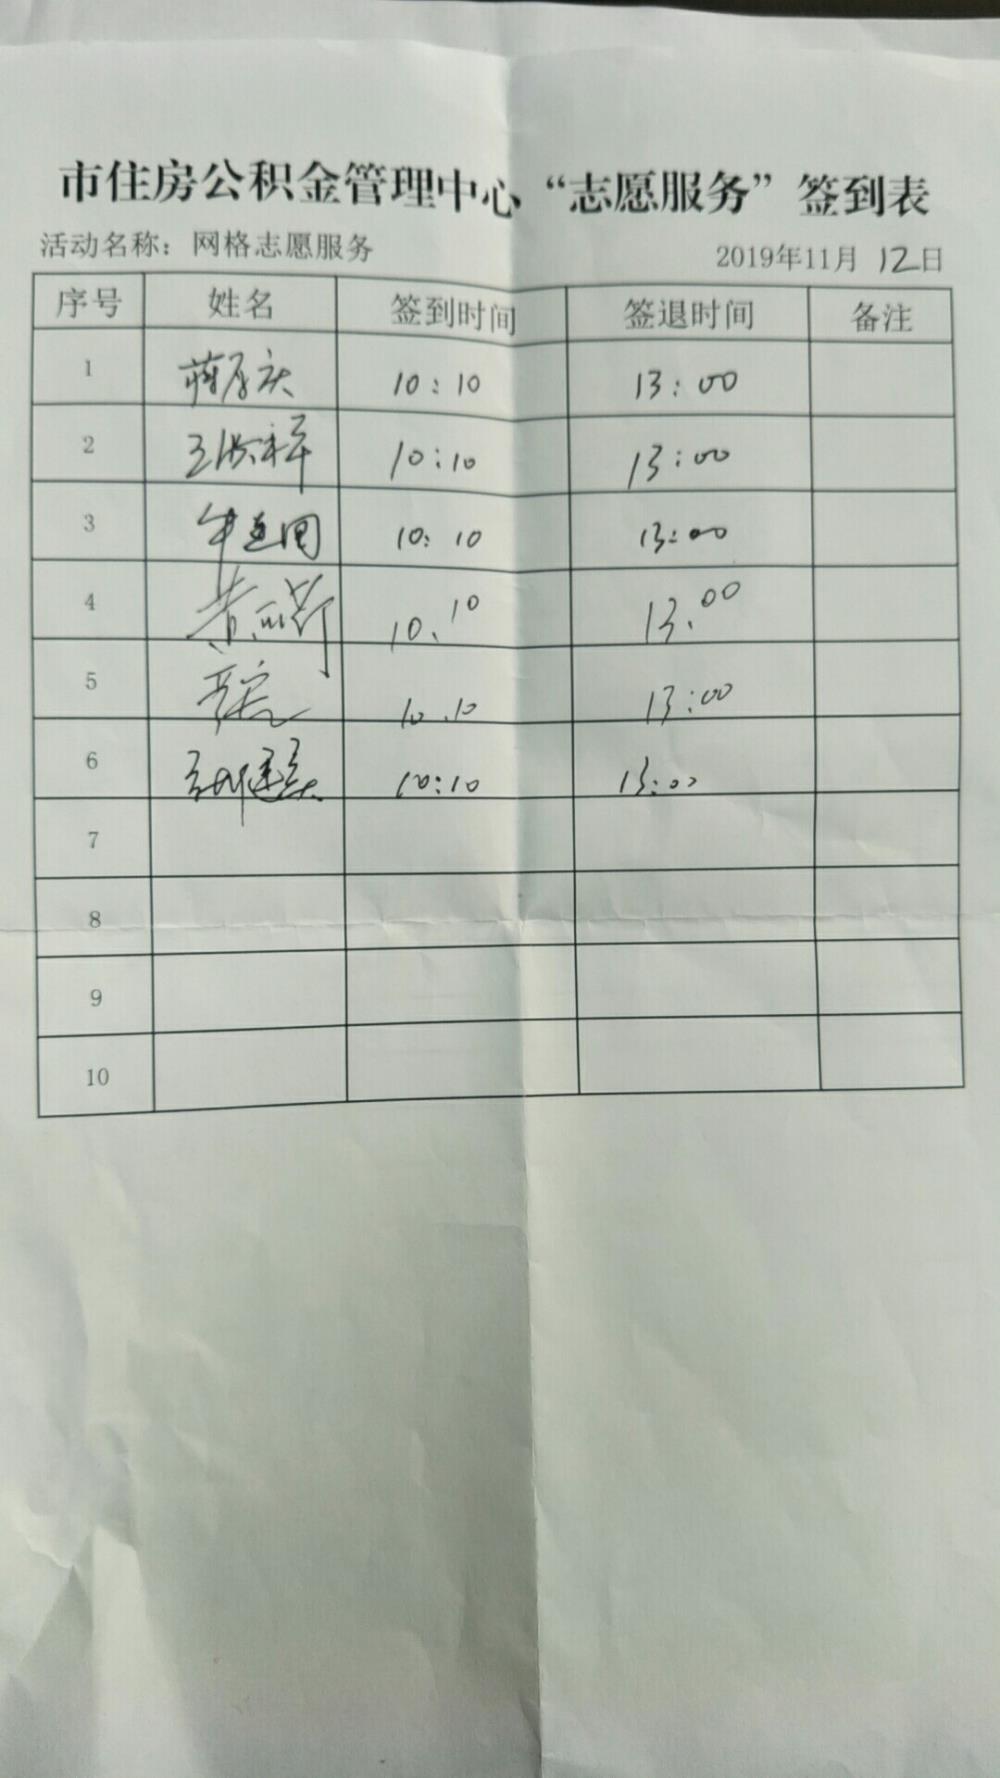 市住房公积金管理中心“志愿服务”签到表
活动名称：网格志愿服务 2019年11月12日
序号 姓名 签到时间 签退时间 备注
1 10:10 13:00
2 王洪祥 10:10 13:00
3 10:10 13:00
4 10.10 13.00
5 10.10 13:00
6 10:10 13:00
7
8
9
10